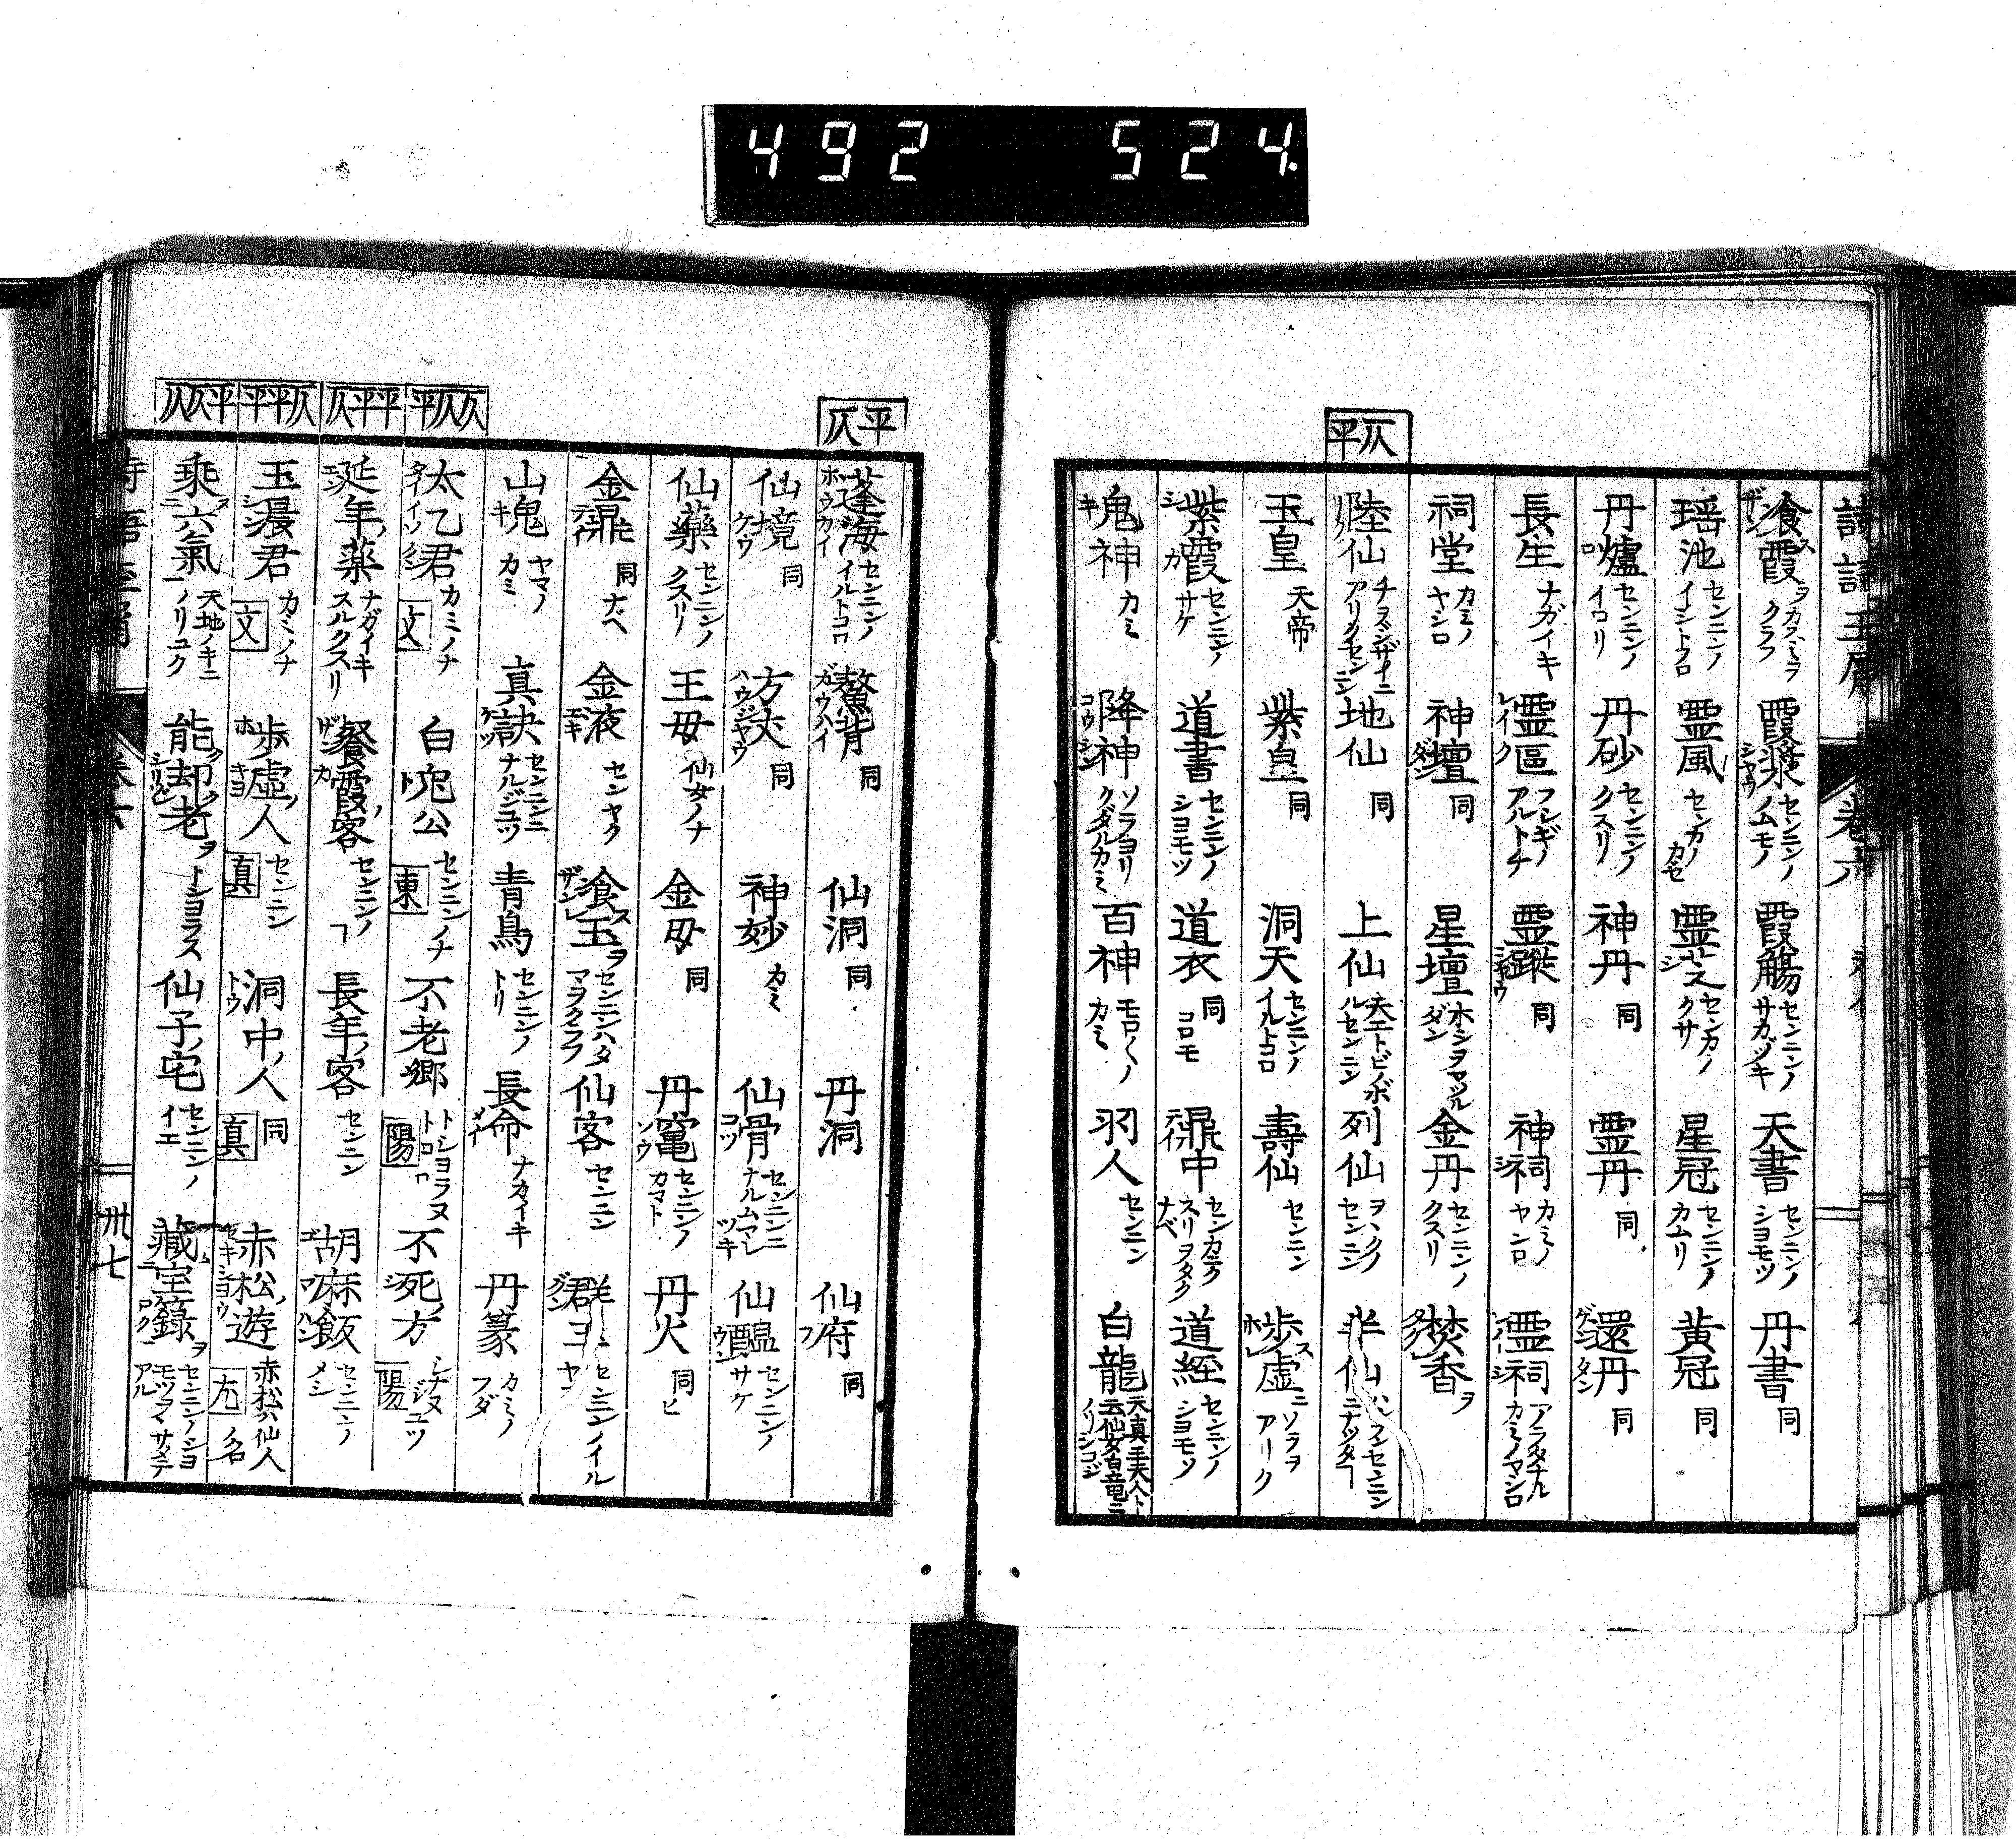 492 524.
仄平
飡霞 ザン ス ヲカスミヲクラフ 霞漿 シヤウ センニンノノムモノ 霞觴 センニンノサカヅキ 天書 センニンノシヨモツ 丹書 同
瑶池 センニンノイシトコロ 霊風 センカノカセ 霊芝 シ センカノクサ 星冠 センニンノカムリ 黄冠 同
丹爐 ロ センニンノイロリ 丹砂 センニンノクスリ 神丹 同 霊丹 同 還丹 ゲンタン 同
長生 ナガイキ 霊區 レイク フシギノアルトチ 霊蹤 シヤウ 同 神祠 シ カミノヤシロ 霊祠 シ アラタナルカミノヤシロ
祠堂 カミノヤシロ 神壇 ダン 同 星壇 ダン ホシヲマツル 金丹 センニンノクスリ 焚香 ヲ
陸仙 リク チヨジザイニアリクセンニン 地仙 同 上仙 天エトビノボルセンニン 列仙 ヲヽクノセンニン 半仙
玉皇 天帝 紫皇 同 洞天 センニンノイルトコロ 壽仙 センニン 歩虚 ホ ス ニ ソラヲアリク
紫霞 シ カ センニンノサケ 道書 センニンノシヨモツ 道衣 同 コロモ 鼎中 テイ センカニクスリヲタクナベ 道経 センニンノシヨモツ
鬼神 キ カミ 降神 コウシン ソラヨリクダルカミ 百神 モロ〱ノカミ 羽人 センニン 白龍
平仄
蓬海 ホウカイ センニンノイルトコロ 鰲背 ガウハイ 同 仙洞 同 丹洞 仙府 フ 同
仙境 ケウ 同 方丈 ハウジヤウ 同 神妙 カミ 仙骨 コツ センニンニナルムマレツキ 仙醞 ウン センニンノサケ
仙藥 センニンノクスリ 王母 仙女ノナ 金母 同 丹竃 ソウ センニンノカマト 丹火 同ヒ
金鼎 テイ 同ナベ 金液 エキ センヤク 飡玉 ザン ス ヲ センニンハダマヲクラフ 仙客 センニン 群玉 グン センニンノイルヤマ
山鬼 キ ヤマノカミ 真訣 ケツ センニンニナルジユツ 青鳥 センニンノトリ 長命 メイ ナカイキ 丹篆 カミノフダ
平仄仄
太乙君 タイイツ カミノナ 文 白兎公 ト センニンノナ 東 不老郷 トシヨラヌトコロ 陽 不死方 シ シナヌジユツ 陽
仄平平
延年薬 エン ナガイキスルクスリ 餐霞客 ザンカ センニンノ 長年客 センニン 胡麻飯 ゴマハン センニンノメシ
平平仄
玉晨君 シン カミノナ 文 歩虚人 ホキヨ センニン 真 洞中人 トウ 同 真 赤松遊 セキシヨウ 赤松ハ仙人ノ名 尤
仄仄平
乘六氣 ス ニ 天地ノキニノリユク 能却老 シリゾ ヲ トシヨラス 仙子宅 センニンノイエ 藏室籙 ロク センニンノシヨモツヲヲサメテアル
卅七